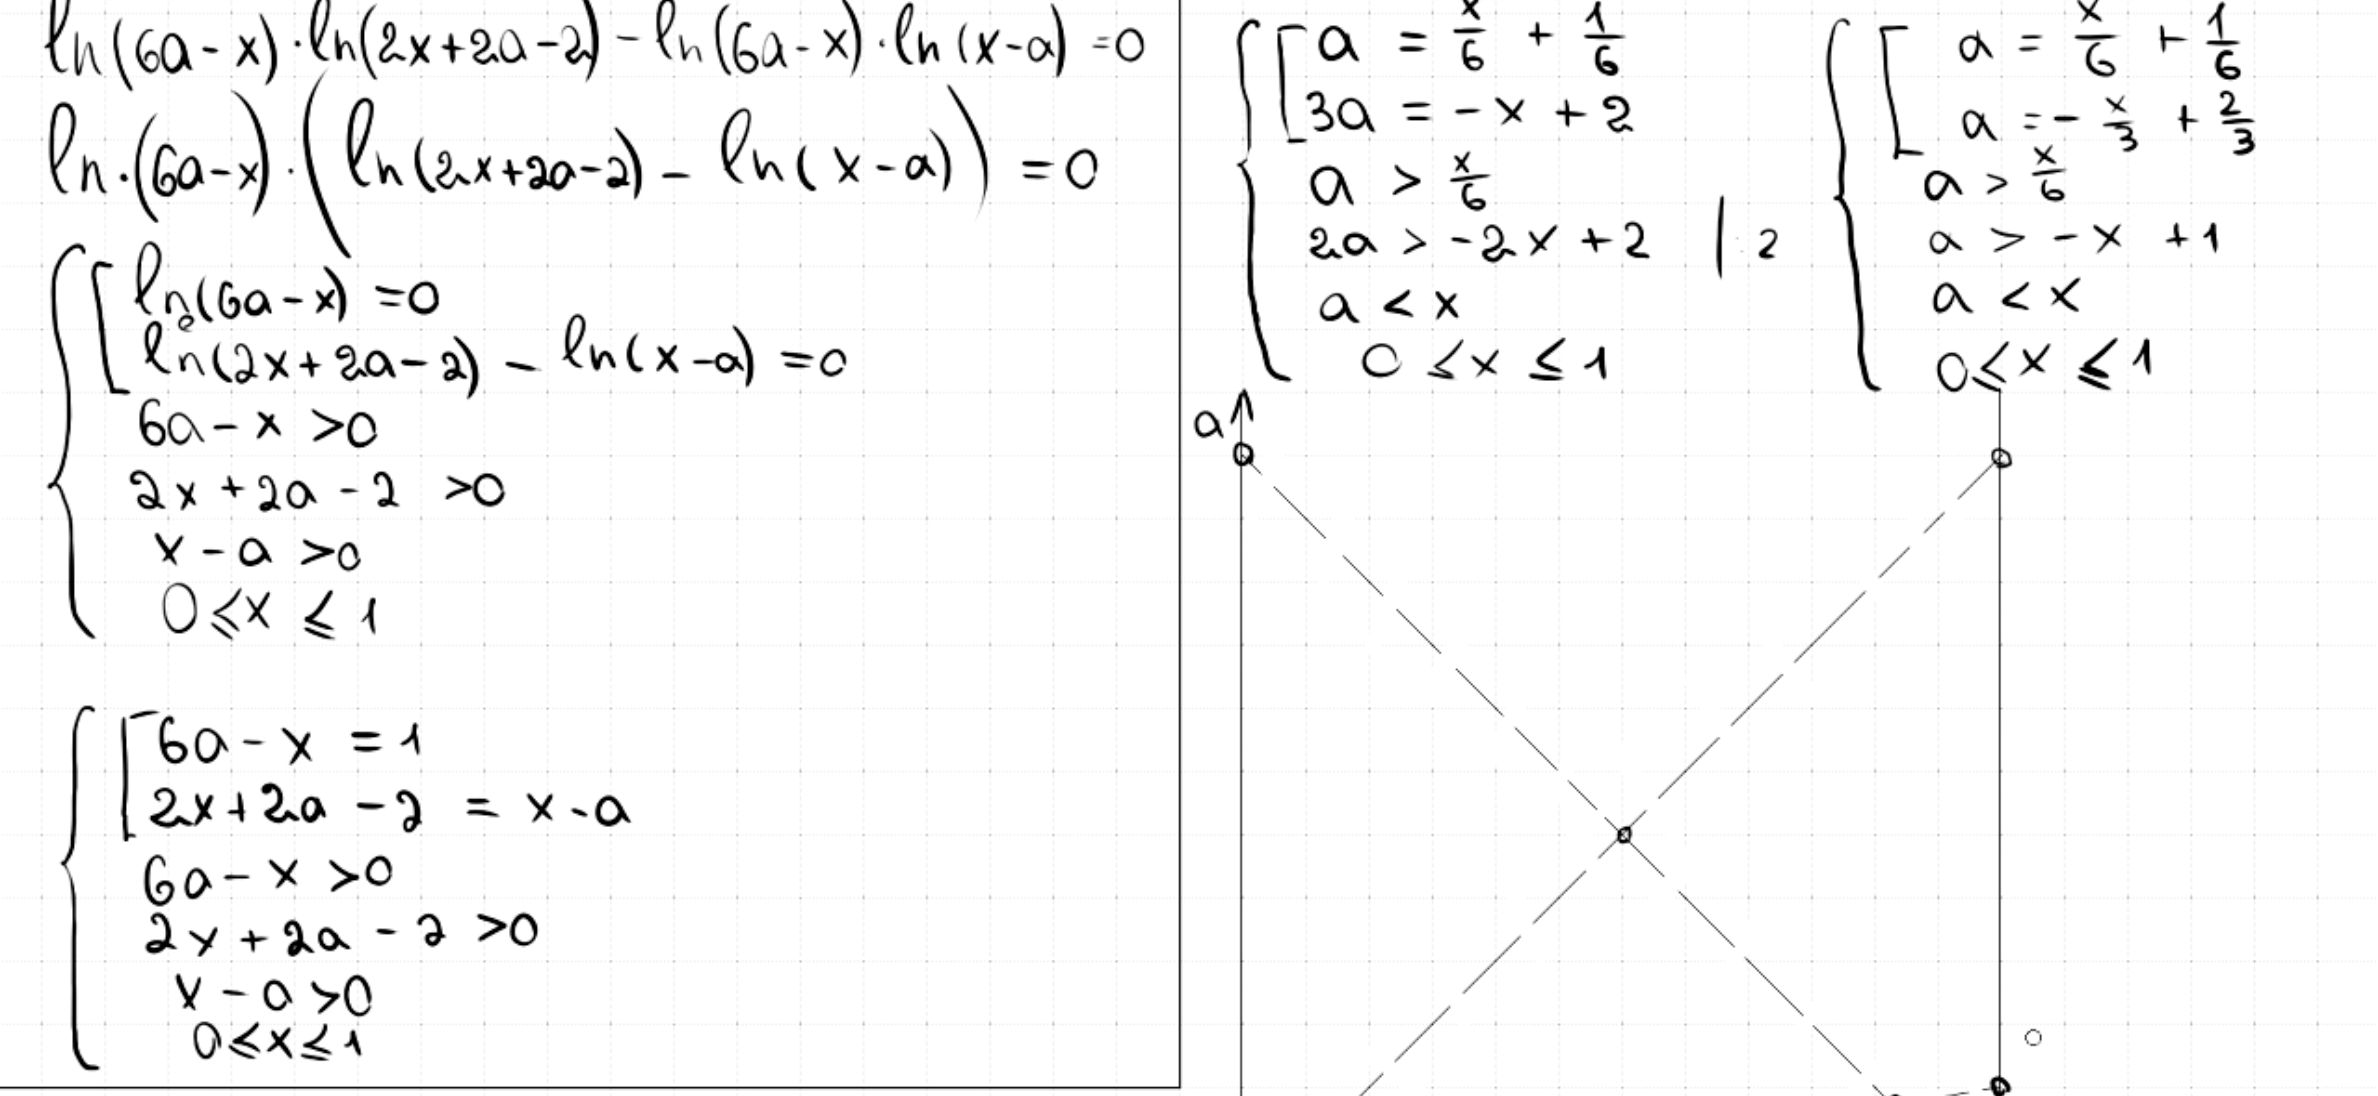 ln(6a-x)·ln(2x+2a-2) - ln(6a-x)·ln(x-a) =0
ln·(6a-x)·(ln(2x+2a-2) - ln(x-a)) =0
ln(6a-x) =0
ln(2x+2a-2) - ln(x-a) =0
6a-x >0
2x+2a-2 >0
x-a >0
0≤x≤1
6a-x =1
2x+2a-2 = x-a
6a-x >0
2x+2a-2 >0
x-a >0
0≤x≤1
a = x/6 + 1/6
3a = -x +2
a > x/6
2a > -2x +2 | : 2
a < x
0 ≤ x ≤ 1
a = x/6 + 1/6
a = - x/3 + 2/3
a > x/6
a > -x +1
a < x
0≤x ≤1
a